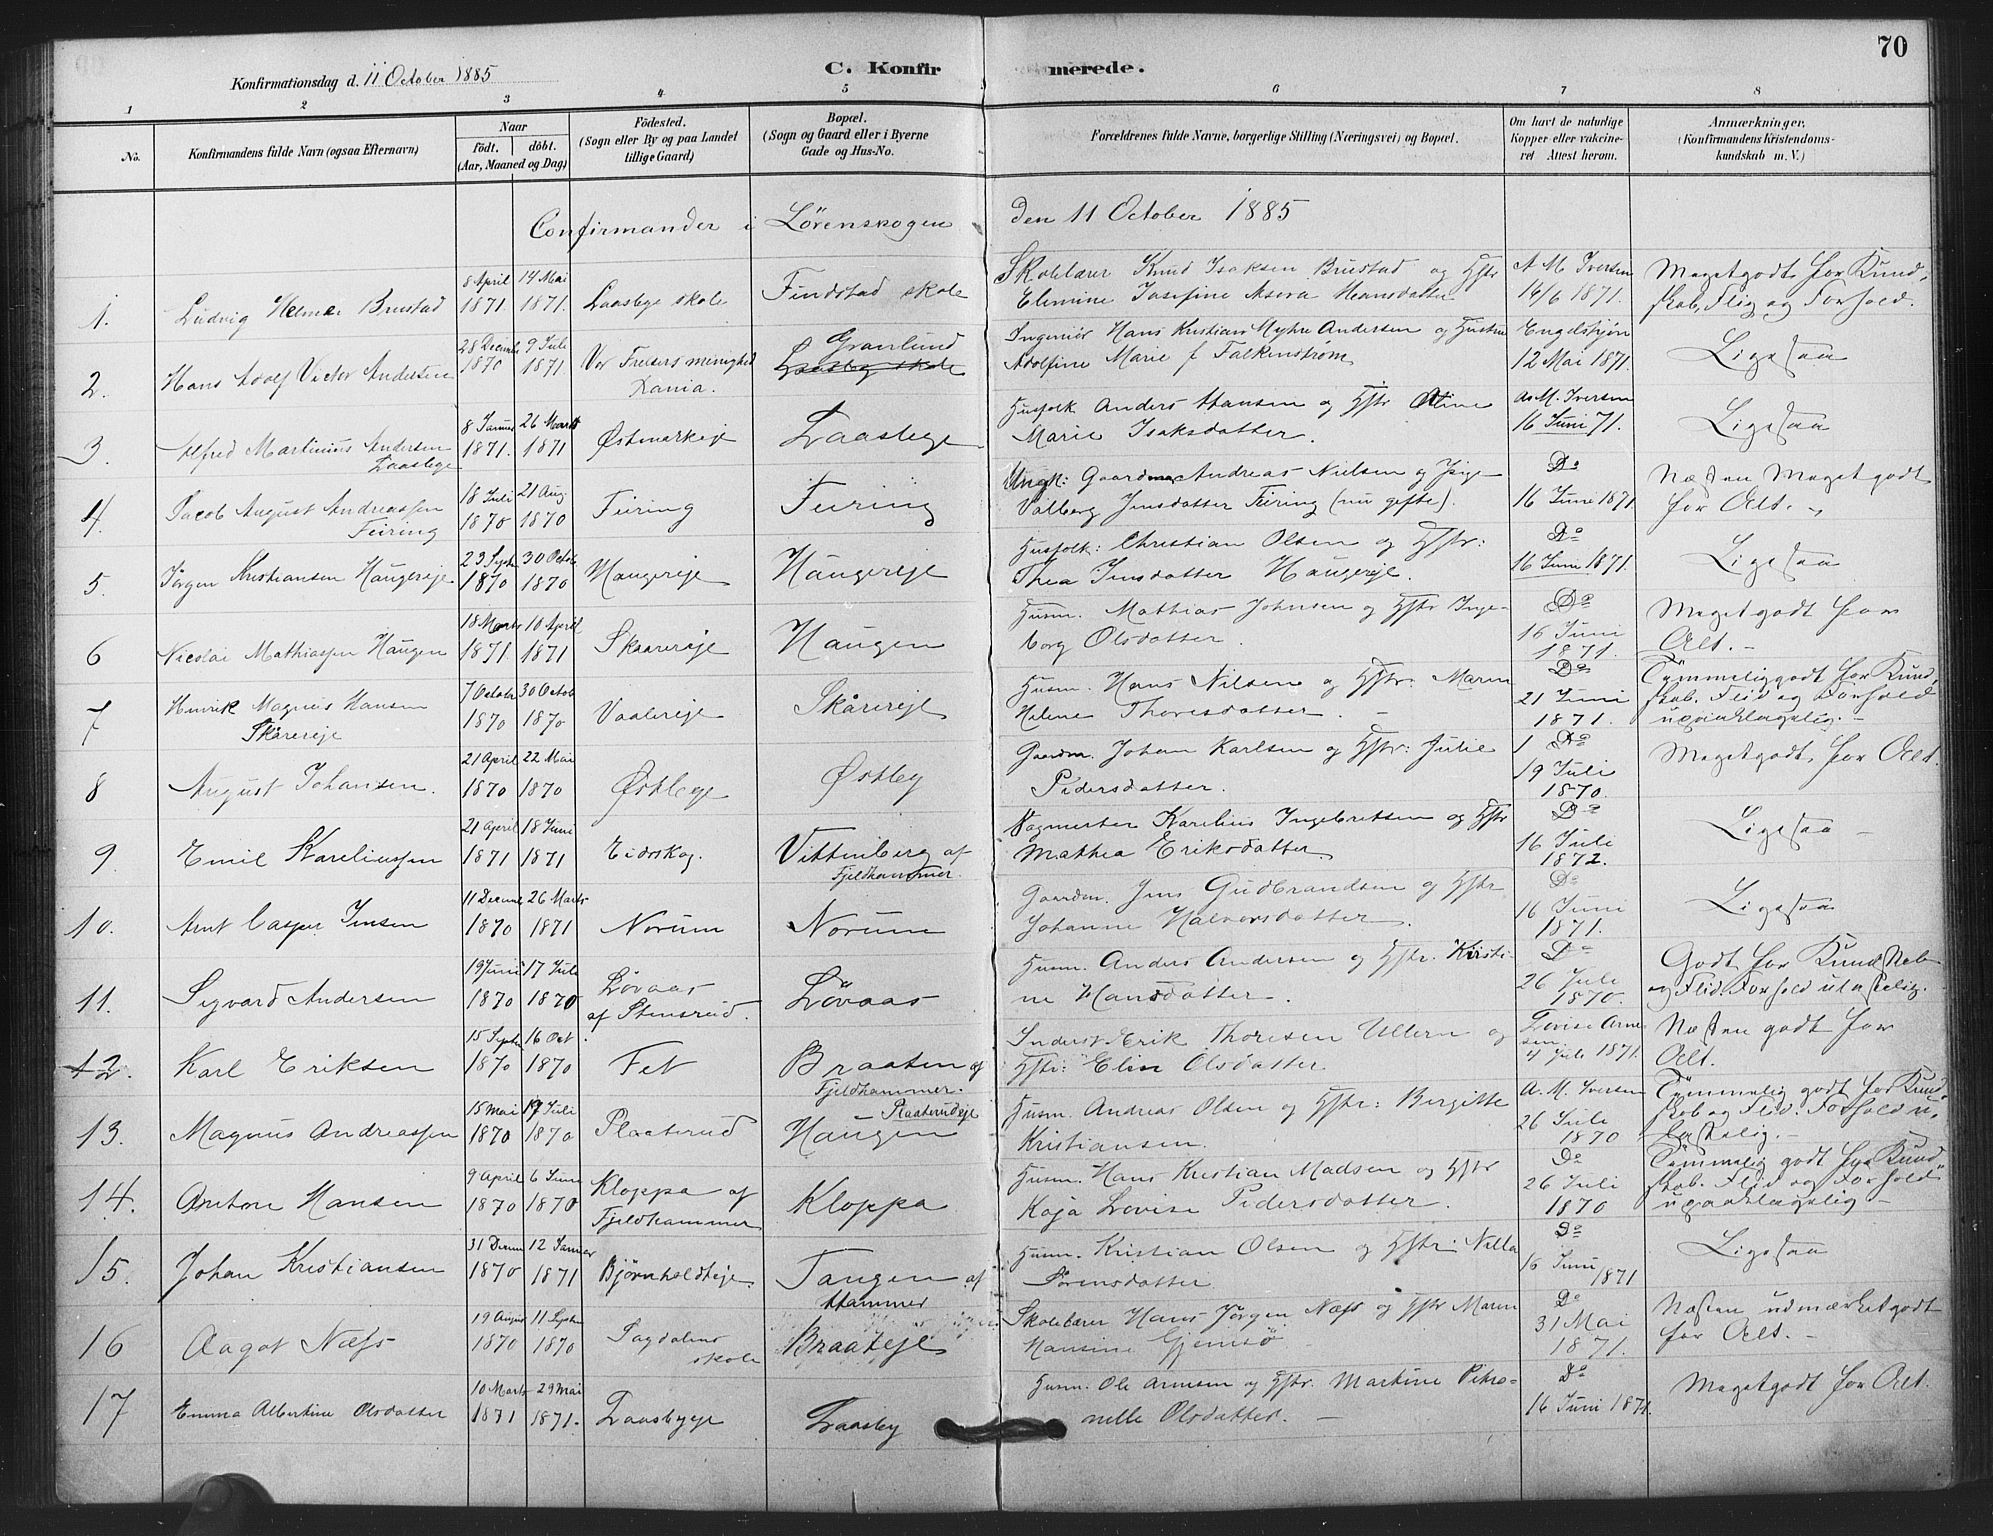 70
Konfirmationsdag d. 11 October 1885
C. Konfirmerede.
1 2 3 4 5 6 7 8
No.
Konfirmandens fulde Navn (ogsaa Efternavn)
Naar
födt. döbt.
(Aar, Maaned og Dag)
Födested.
(Sogn eller By og paa Landet
tillige Gaard)
Bopæl.
(Sogn og Gaard eller i Byerne
Gade og Hus-No.
Forældrenes fulde Navne, borgerlige Stilling (Næringsvei) og Bopæl.
Om havt de naturlige
Kopper eller vakcine-
ret Attest herom.
Anmærkninger.
(Konfirmandens Kristendoms-
kundskab m. V.)
Confirmander i Lörenskogen den 11 October 1885
1. Ludvig Helmer Brustad
8 April 1871. 14 Mai 1871.
Laasbye skole
Findstad skole
Skolelærer Knud Isaksen Brustad og Hstr
Elemine Josefine Asora Hansdatter
A M. Iversen
14/6 1871.
Megetgodt for Kund-
skab, Flig og Forhold.
2. Hans Adolf Victor Andersen
28 Decemb 1870 9 Juli 1871.
Vor Frelsers menighed
Xania.
Granlund
Laasbye skole
Ingeniör Hans Kristian Myhre Andersen og Hustru
Adolfine Marie f Falkenström
Engelskjön
12 Mai 1871.
Ligesaa
3. Alfred Martinius Andersen
Laasbye
8 Januar 1871. 26 Marts 1871
Østmarkeje
Laasbye
Husfolk Anders Hansen og Hstr Oline
Marie Isaksdatter.
As M. Iversen
16 Juni 71.
Ligesaa
4. Jacob August Andreassen
Feiring
18 Juli 1870 21 Aug 1870
Feiring
Feiring
Ungk: Gaardma Andreas Nielsen og Pige
Valborg Jensdatter Feiring (nu gifte).
Do
16 Juni 1871
Næsten Megetgodt
for Alt.
5. Jörgen Kristiansen Haugereje
23 Septe 1870 30 Octob 1870
Haugereje
Haugereje
Husfolk: Christian Olsen og Hstr:
Thea Jensdatter Haugereje.
Do
16 Juni 1871.
Ligesaa
6 Nicolai Mathiassen Haugen
18 Marts 1871. 10 April 1871
Skaarereje
Haugen
Husm. Mathias Johnsen og Hstr Inge-
borg Olsdatter.
Do
16 Juni
1871.
Megetgodt for
Alt. -
7 Henrik Magnus Hansen
Skårereje
7 Octobr 1870 30 Octob 1870
Vaalereje
Skårereje
Husm. Hans Nilsen og Hstr: Maren
Helene Thoresdatter.
Do
21 Juni
1871.
Tömmeliggodt for Kund-
skab. Flid og Forhold
upaaklagelig. -
8 August Johansen.
21 April 1870 22 Mai 1870
Østbye
Østby
Gaardm. Johan Karlsen og Hstr: Julie
Pedersdatter.
Do
19 Juli
1870.
Megetgodt for Alt.
9 Emil Kareliussen
21 April 1871 18 Juni 1871
Eidskog.
Vittenberg af
Fjeldhammer.
Vogmester Karelius Ingebretsen og Hstr
Mathea Eriksdatter.
Do
16 Juli
1872.
Ligesaa
10. Arnt Casper Jensen
11 Decembe 1870 26 Marts 1871
Norum
Norum
Gaardm. Jens Gudbrandsen og Hstr
Johanne Halvorsdatter.
Do
16 Juni
1871.
Ligesaa
11. Sigvard Andersen
19 Juni 1870 17 Juli 1870
Lövaas
af Stensrud.
Lövaas
Husm. Anders Andersen og Hstr. Kirsti-
ne Hansdatter.
Do
26 Juli
1870.
Godt for Kundskab
og Flid. Forhold ulastelig.
12. Karl Eriksen
15 Septe 1870 16 Oct 1870
Fet
Braaten af
Fjeldhammer.
Inderst Erik Thoresen Ullern og
Hstr: Elin Olsdatter.
Lovise Arne
sen.
4 Juli 1871.
Næsten godt for
Alt.
13. Magnus Andreassen
15 Mai 1870 17 Juli 1870
Plaaterud
Plaaterudeje
Haugen
Husm. Andreas Olsen og Hstr: Bergitte
Kristiansen.
A. M. Iversen
26 Juli
1870
Tömmelig godt for Kund
skab og Flid. Forhold u-
lastelig. -
14. Anton Hansen
9 April 1870 6 Juni 1870
Kloppa af
Fjeldhammer
Kloppa
Husm. Hans Kristian Madsen og Hstr
Kaja Lovise Pedersdatter.
Do
26 Juli
1870
Tömmelig godt for Kund
skab. Flid og Forhold
upaaklagelig -
15. Johan Kristiansen
31 Decem 1870 12 Januar 1871
Björnholdteje.
Tangen af
Hammer
Husm. Kristian Olsen og Hstr: Nilla
Sörensdatter
Do
16 Juni
1871
Ligesaa
16 Aagot Næss
19 August 1870 11 Septe 1870
Sagdalens
skole
Braateje
Skolelærer Hans Jörgen Næss og Hstr Maren
Hansine Gjemsö
Do
31 Mai
1871.
Næsten udmærketgodt
for Alt. -
17 Emma Albertine Olsdatter
10 Marts 1871 29 Mai 1871.
Laasbyeje
Laasby
Husm. Ole Arnesen og Hstr. Martine Petro-
nelle Olsdatter. -
Do
16 Juni 1871.
Megetgodt for Alt.